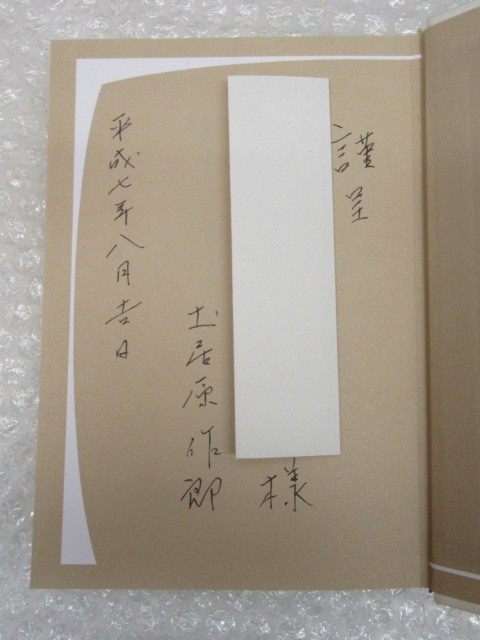 謹呈
様
土居原作郎
平成七年八月吉日